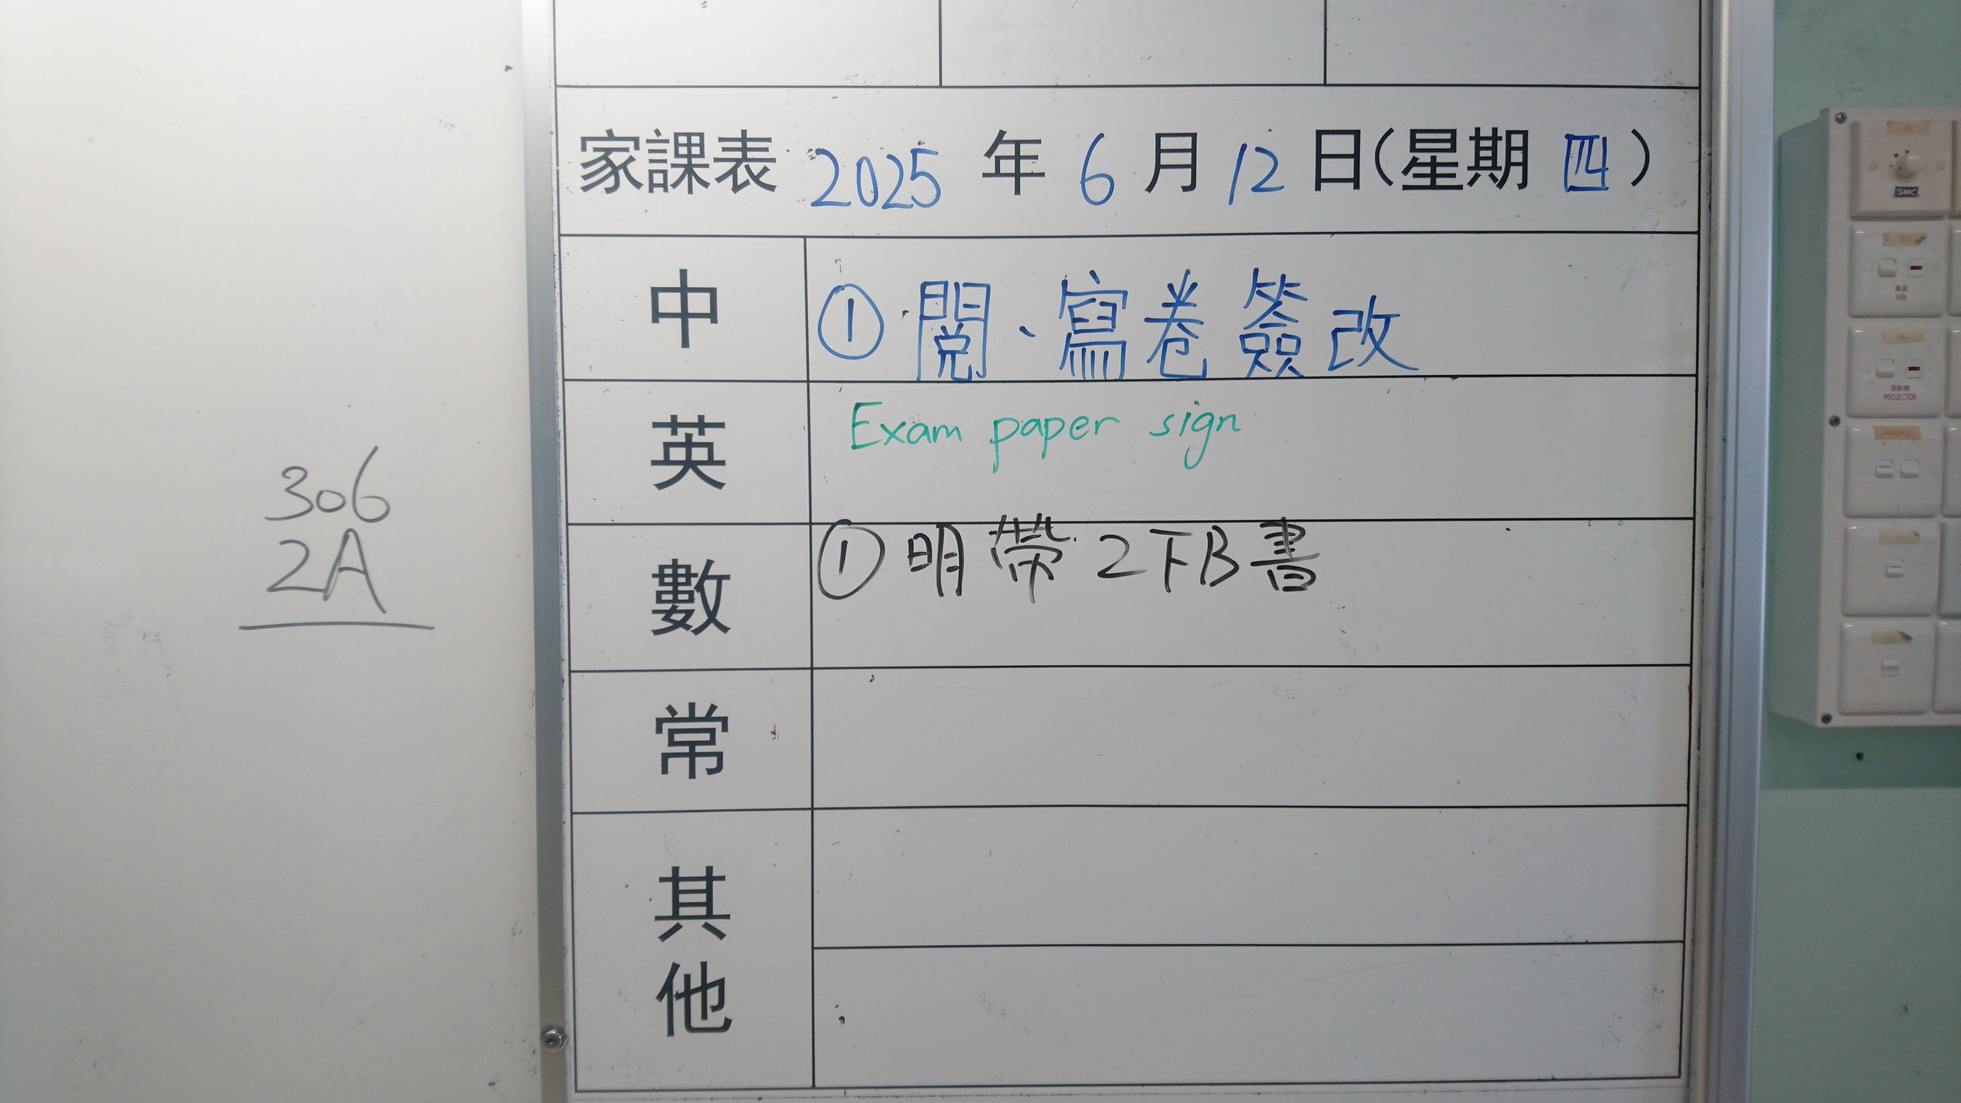 家課表 2025 年 6 月 12 日(星期 四)
中 ① 閱、寫卷簽改
英 Exam paper sign
數 ① 明帶2下B書
常
其他
306
2A
SMC
FAN
PROJECTOR